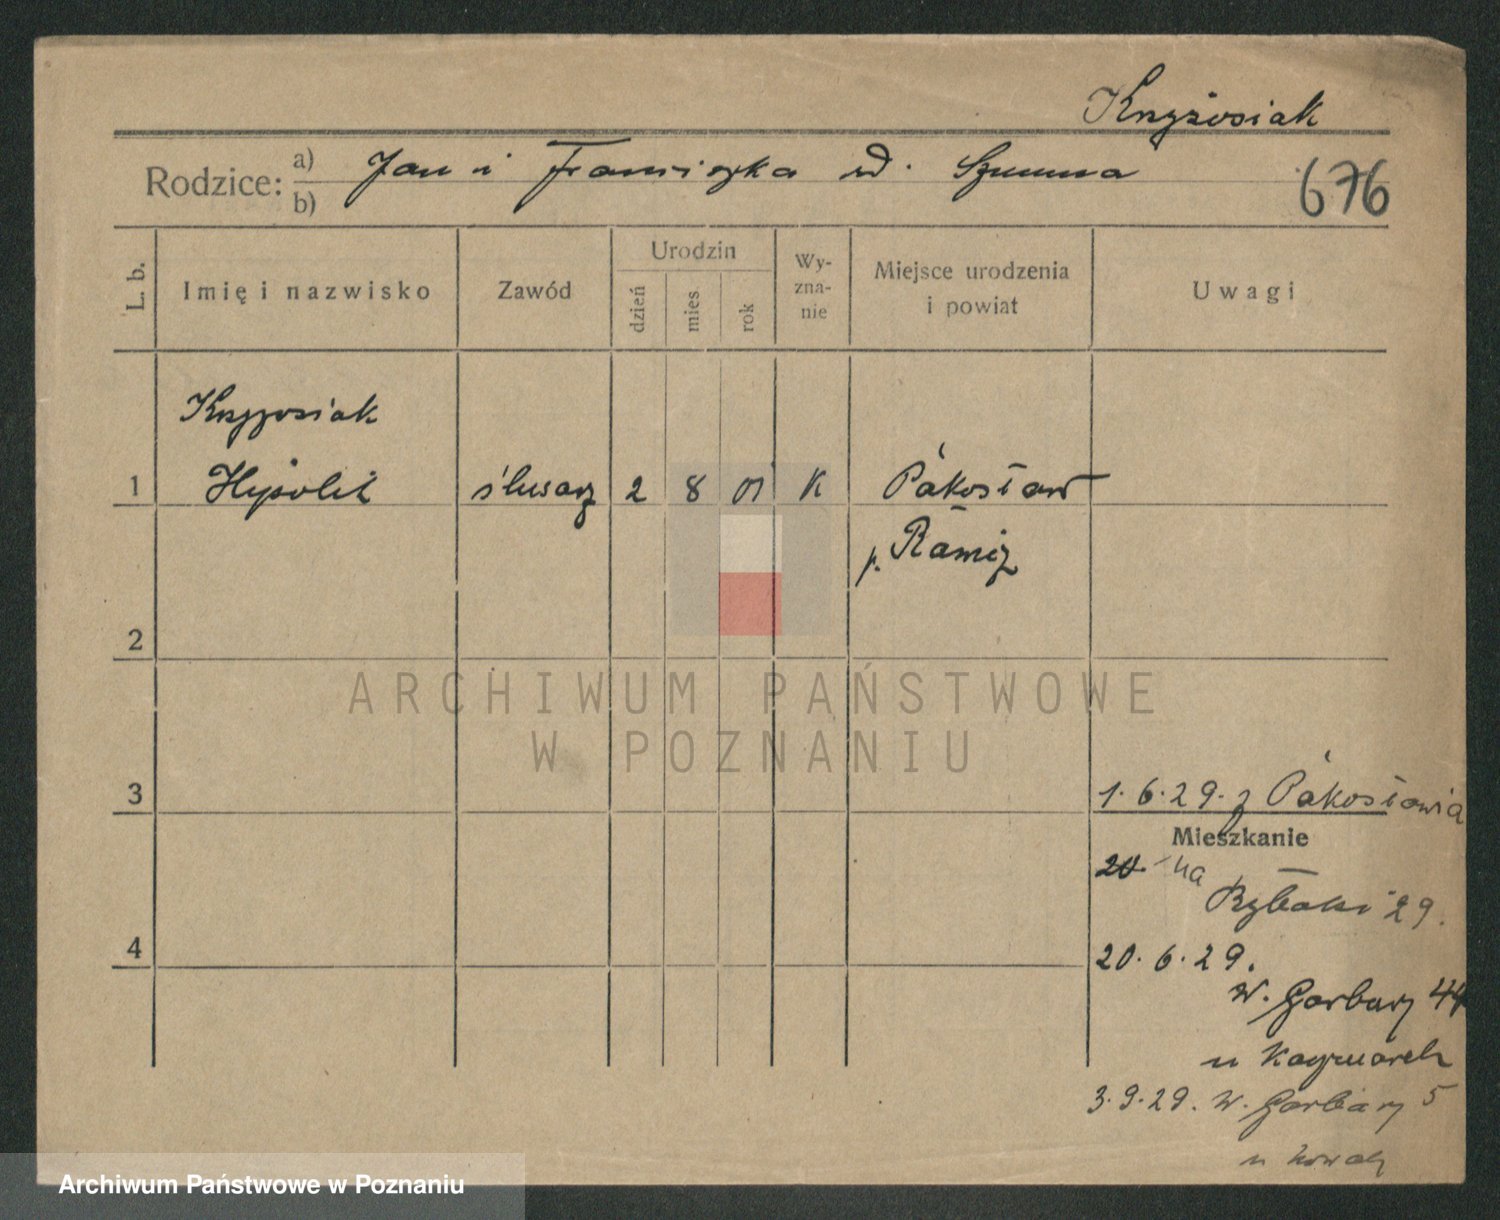 Krzyżosiak
Rodzice: a) b) Jan i Franciszka ur. Szumna
676
L. b.
Imię i nazwisko
Zawód
Urodzin
dzień
mies.
rok
Wy-
zna-
nie
Miejsce urodzenia
i powiat
Uwagi
Krzyżosiak
1 Hipolit ślusarz 2 8 01 K Pakosław
p. Rawicz
2
ARCHIWUM PAŃSTWOWE
W POZNANIU
3
1.6.29. z Pakosławia
Mieszkanie
20 na
Rybaki 29.
4
20.6.29.
W. Garbary 44
u Kaczmarek
3.9.29. W. Garbary 5
u Nowak
Archiwum Państwowe w Poznaniu